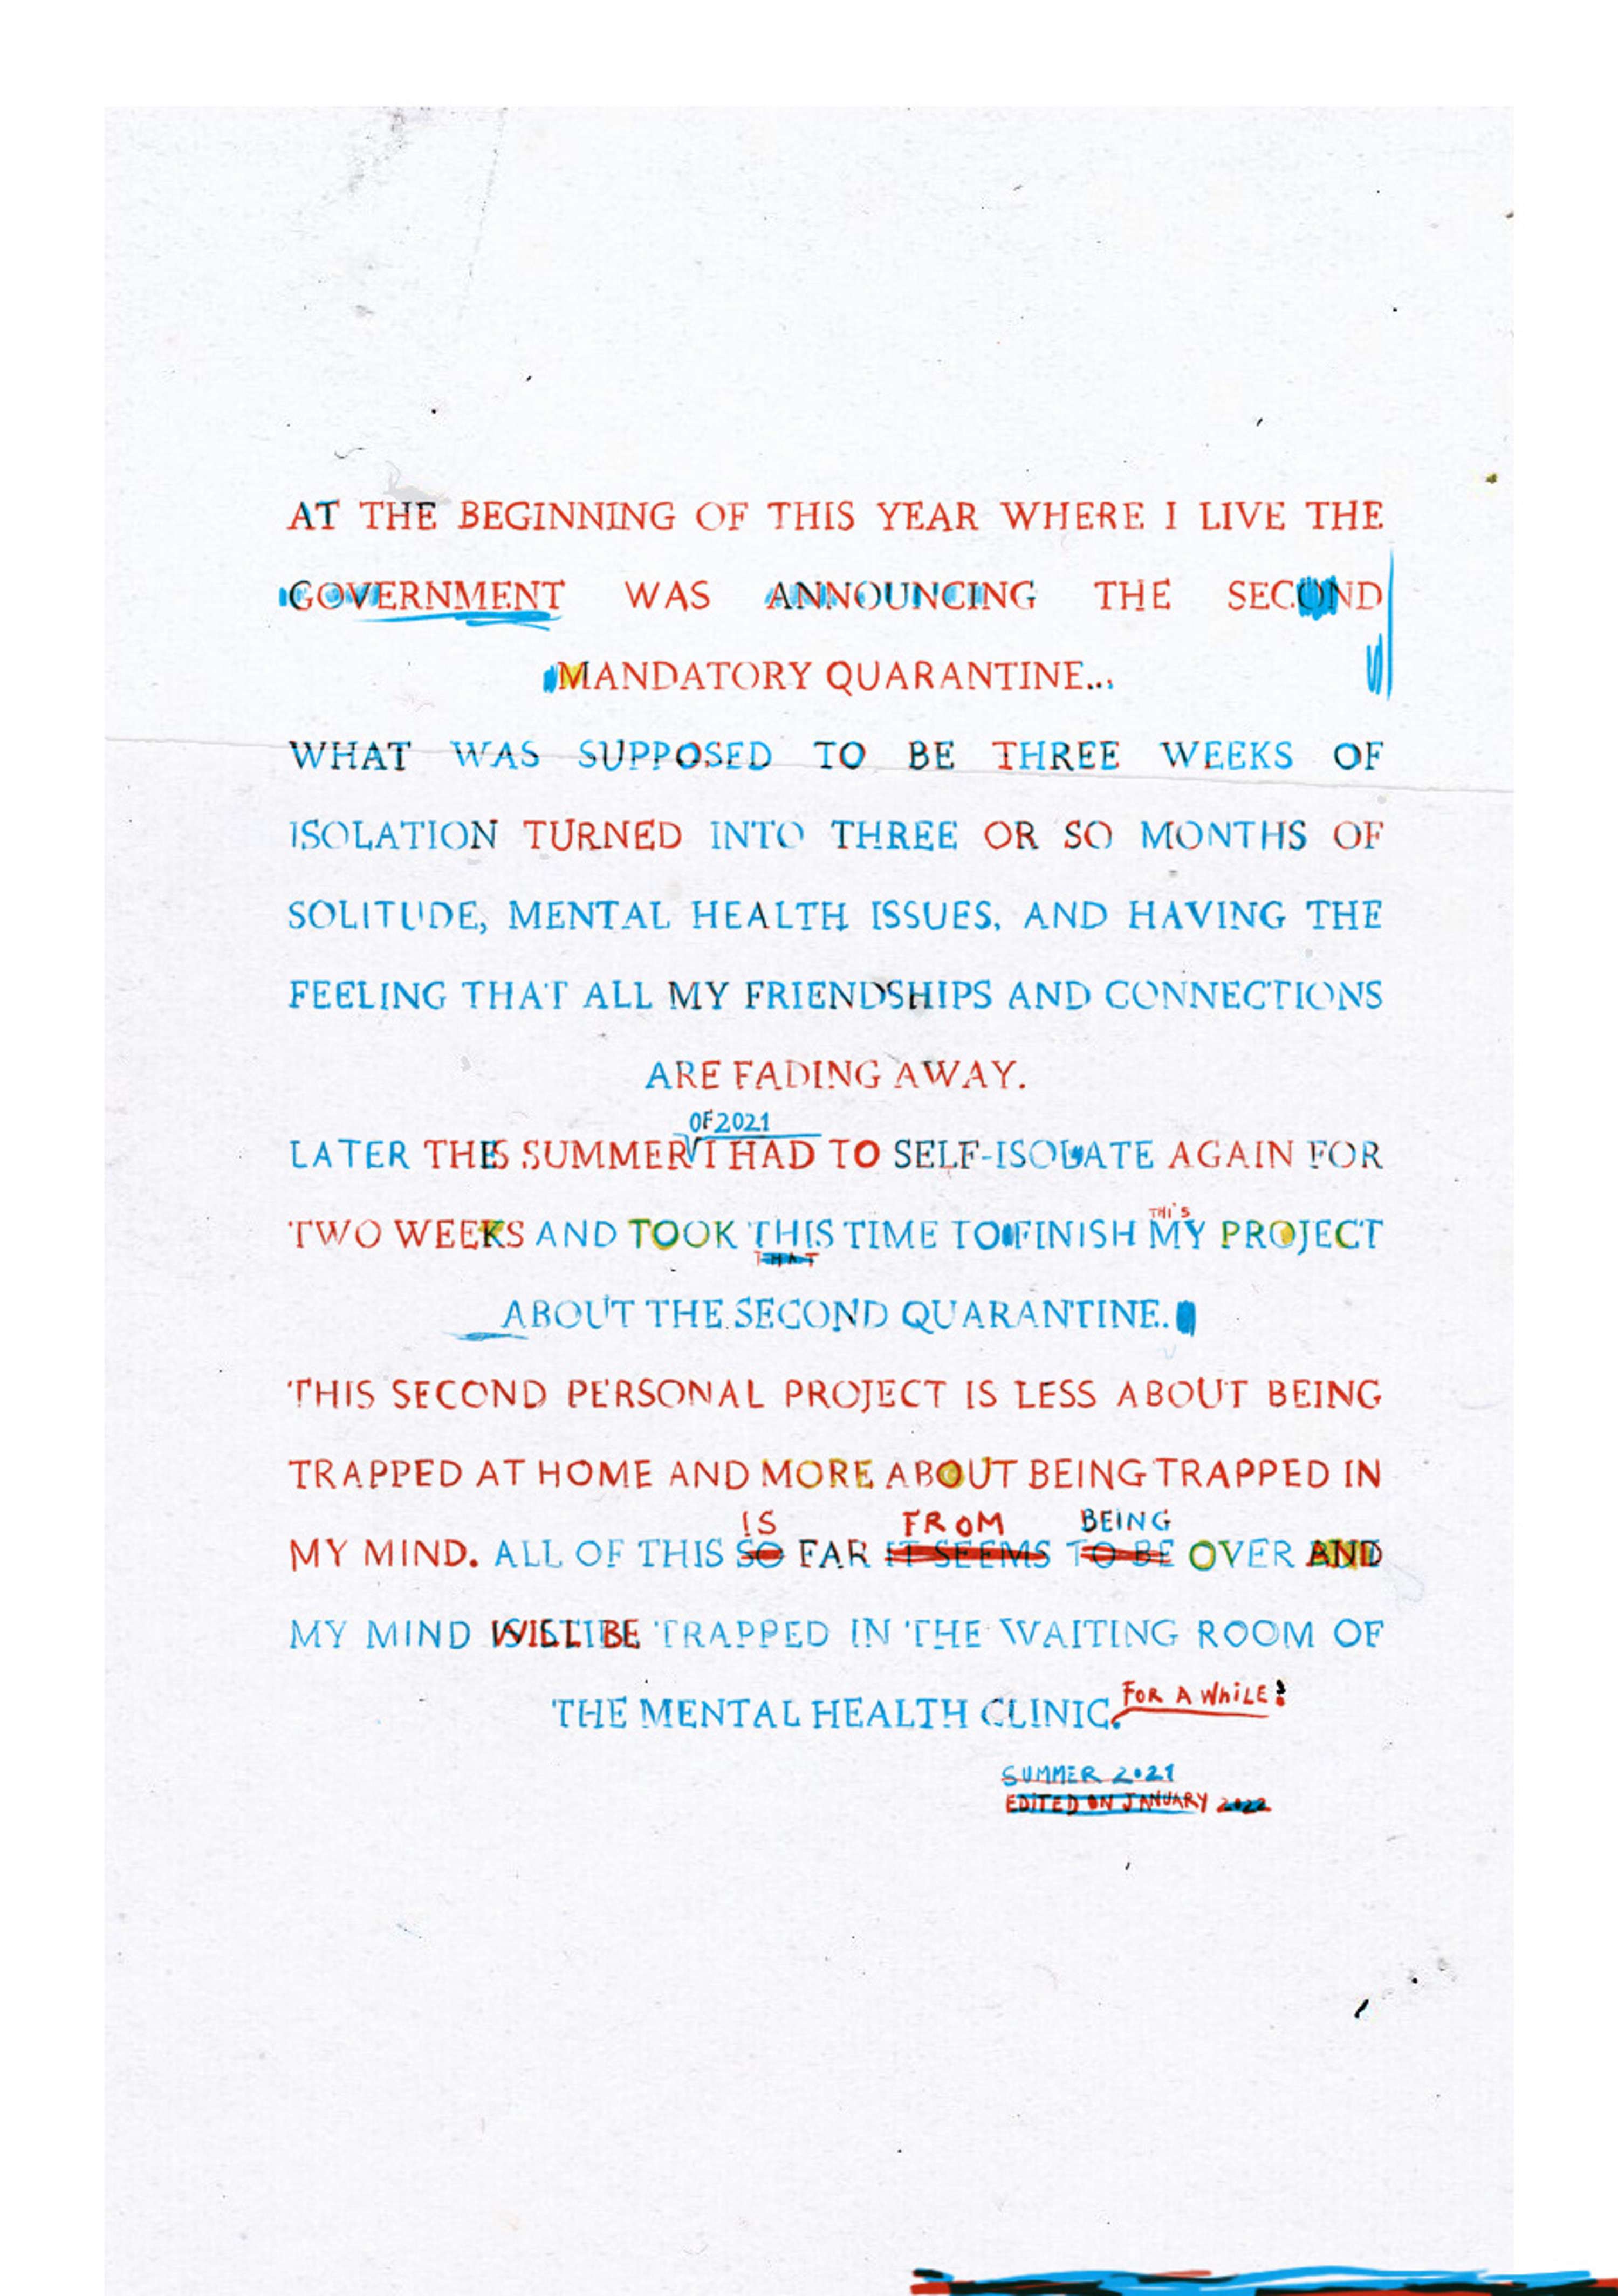 AT THE BEGINNING OF THIS YEAR WHERE I LIVE THE
GOVERNMENT WAS ANNOUNCING THE SECOND
MANDATORY QUARANTINE...
WHAT WAS SUPPOSED TO BE THREE WEEKS OF
ISOLATION TURNED INTO THREE OR SO MONTHS OF
SOLITUDE, MENTAL HEALTH ISSUES, AND HAVING THE
FEELING THAT ALL MY FRIENDSHIPS AND CONNECTIONS
ARE FADING AWAY.
OF 2021
LATER THIS SUMMER I HAD TO SELF-ISOLATE AGAIN FOR
THIS
TWO WEEKS AND TOOK THIS TIME TO FINISH MY PROJECT
THAT
ABOUT THE SECOND QUARANTINE.
THIS SECOND PERSONAL PROJECT IS LESS ABOUT BEING
TRAPPED AT HOME AND MORE ABOUT BEING TRAPPED IN
IS FROM BEING
MY MIND. ALL OF THIS SO FAR IT SEEMS TO BE OVER AND
MY MIND WILL BE TRAPPED IN THE WAITING ROOM OF
THE MENTAL HEALTH CLINIC. FOR A WHILE!
SUMMER 2021
EDITED ON JANUARY 2022